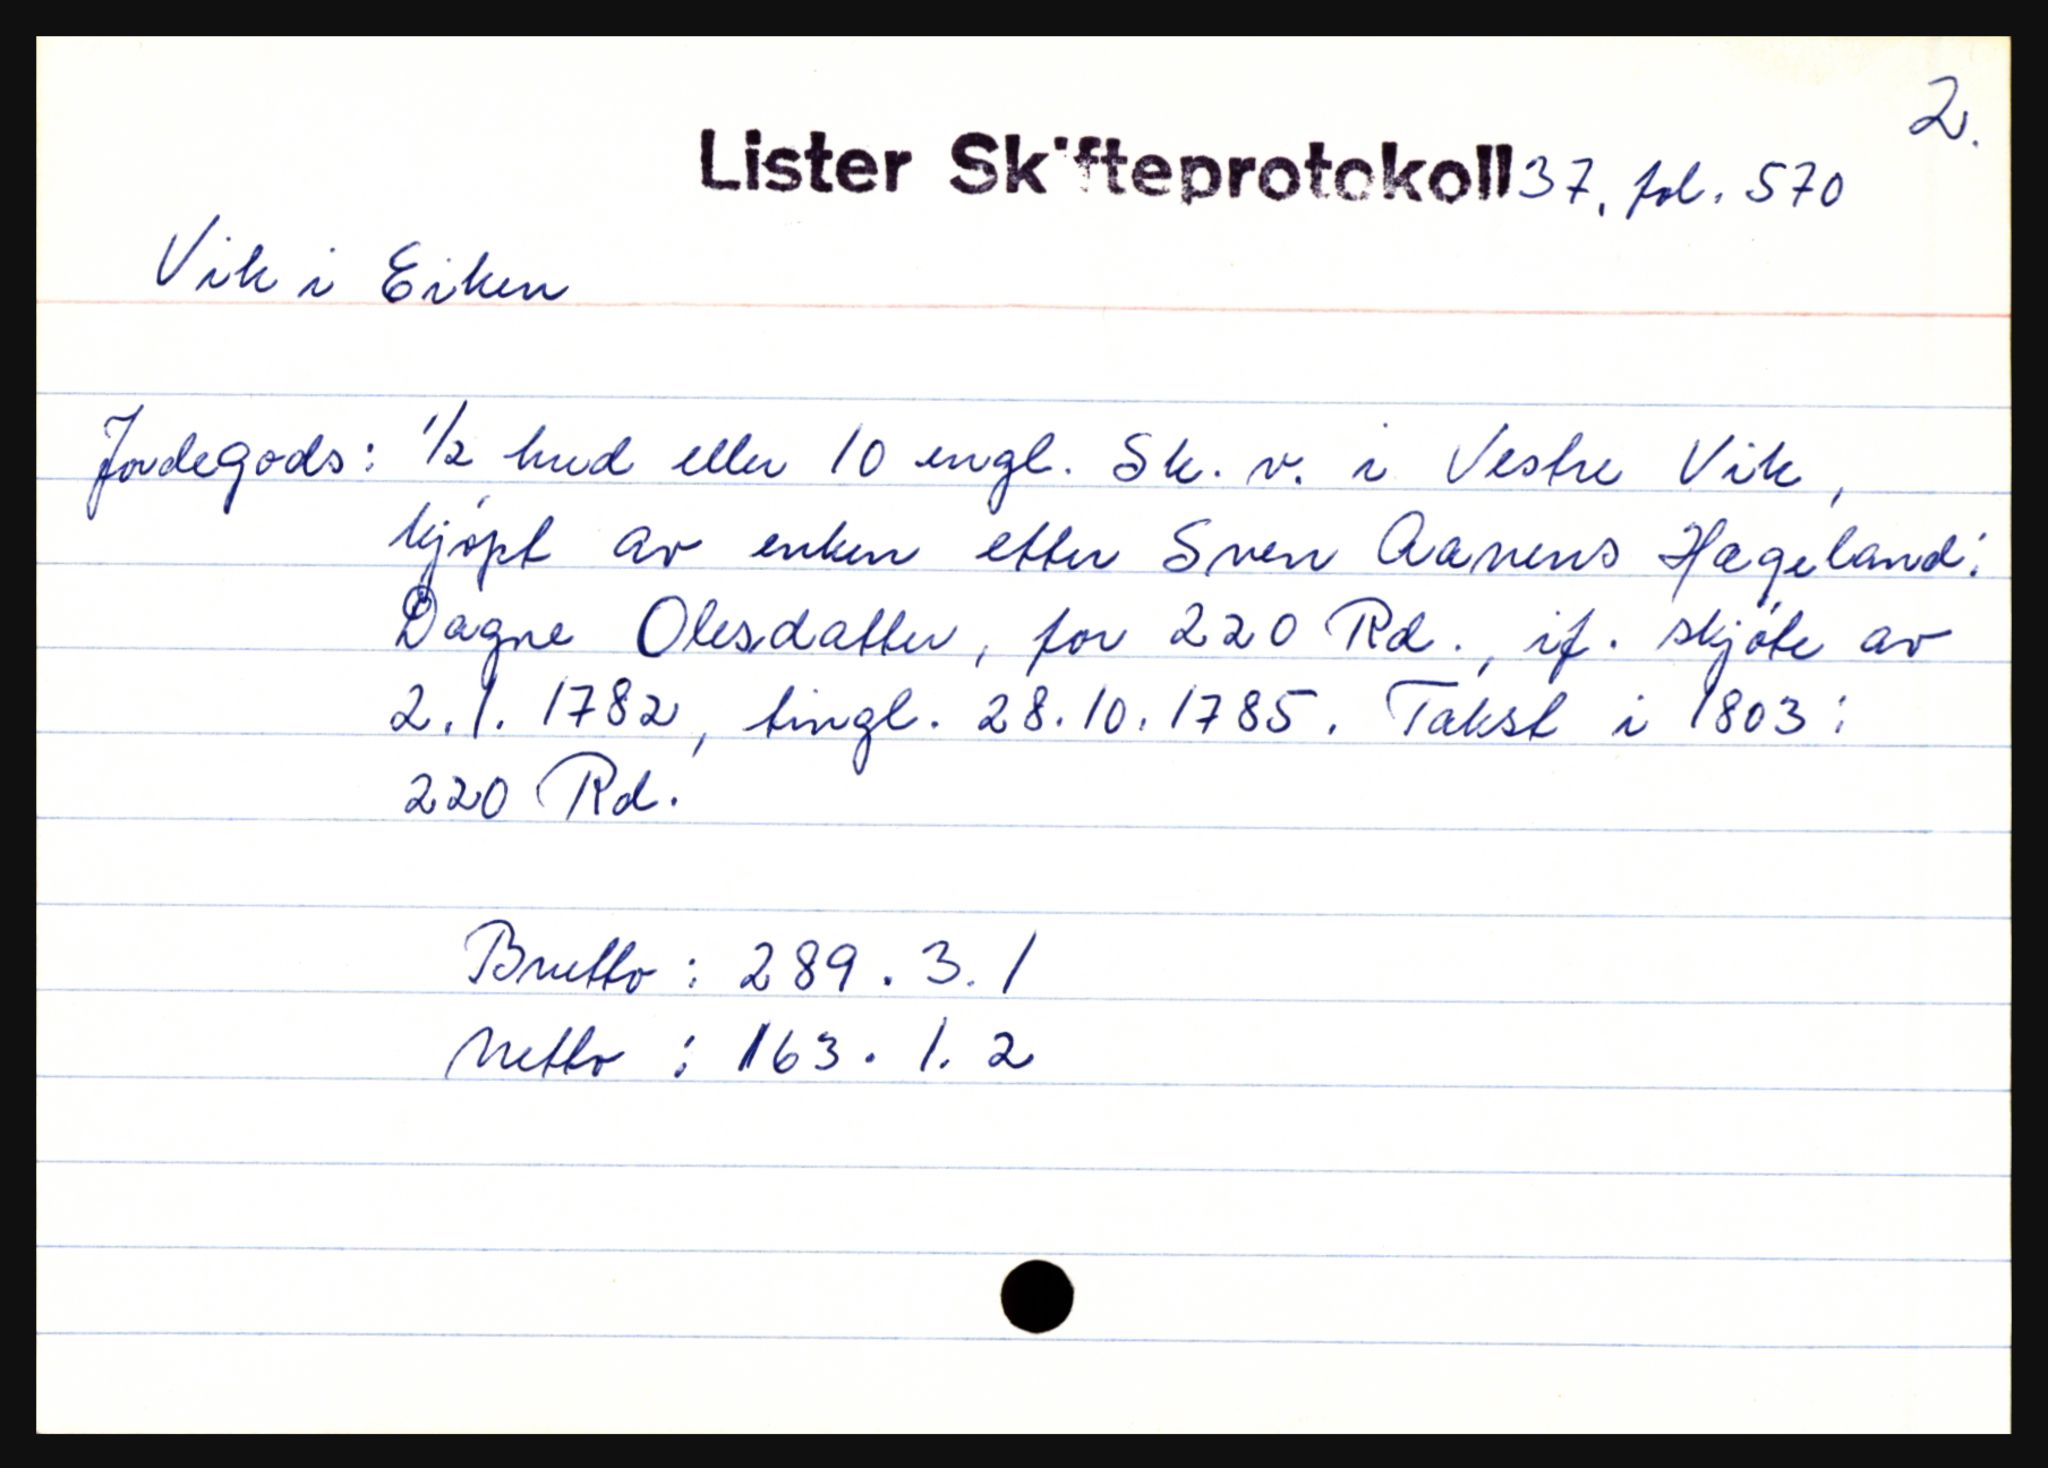 2.
Lister Skifteprotokoll 37, fol. 570
Vik i Eiken
Jordegods: 1/2 hud eller 10 engl. Sk. v. i Vestre Vik,
kjøpt av enken etter Sven Aanens Hægeland:
Dagne Olesdatter, for 220 Rd., if. skjøte av
2.1. 1782, tingl. 28.10.1785. Takst i 1803:
220 Rd.
Brutto: 289. 3. 1
Netto: 163. 1. 2